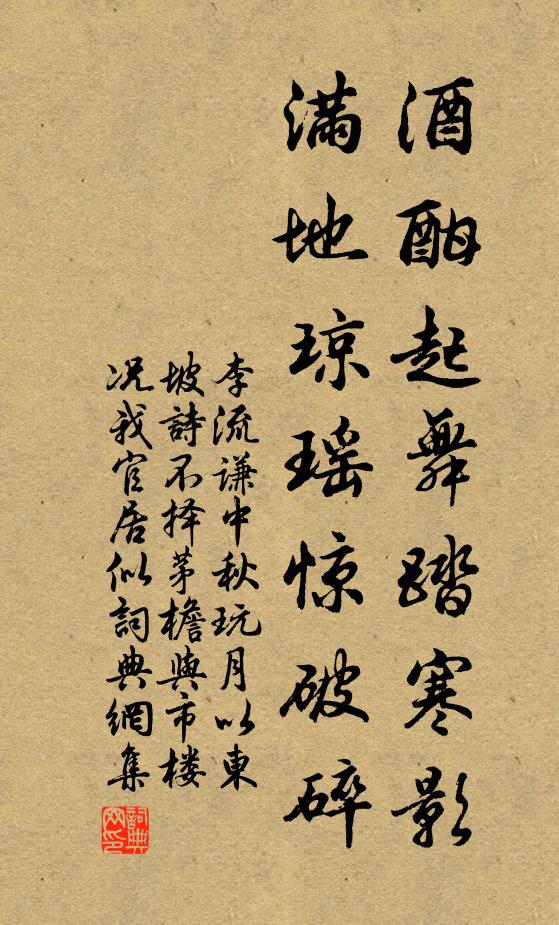 酒酣起舞踏寒影
满地琼瑶惊破碎
李流謙中秋玩月以東
坡詩不择茅檐與市楼
况我官居似詞典網集
詞典网印